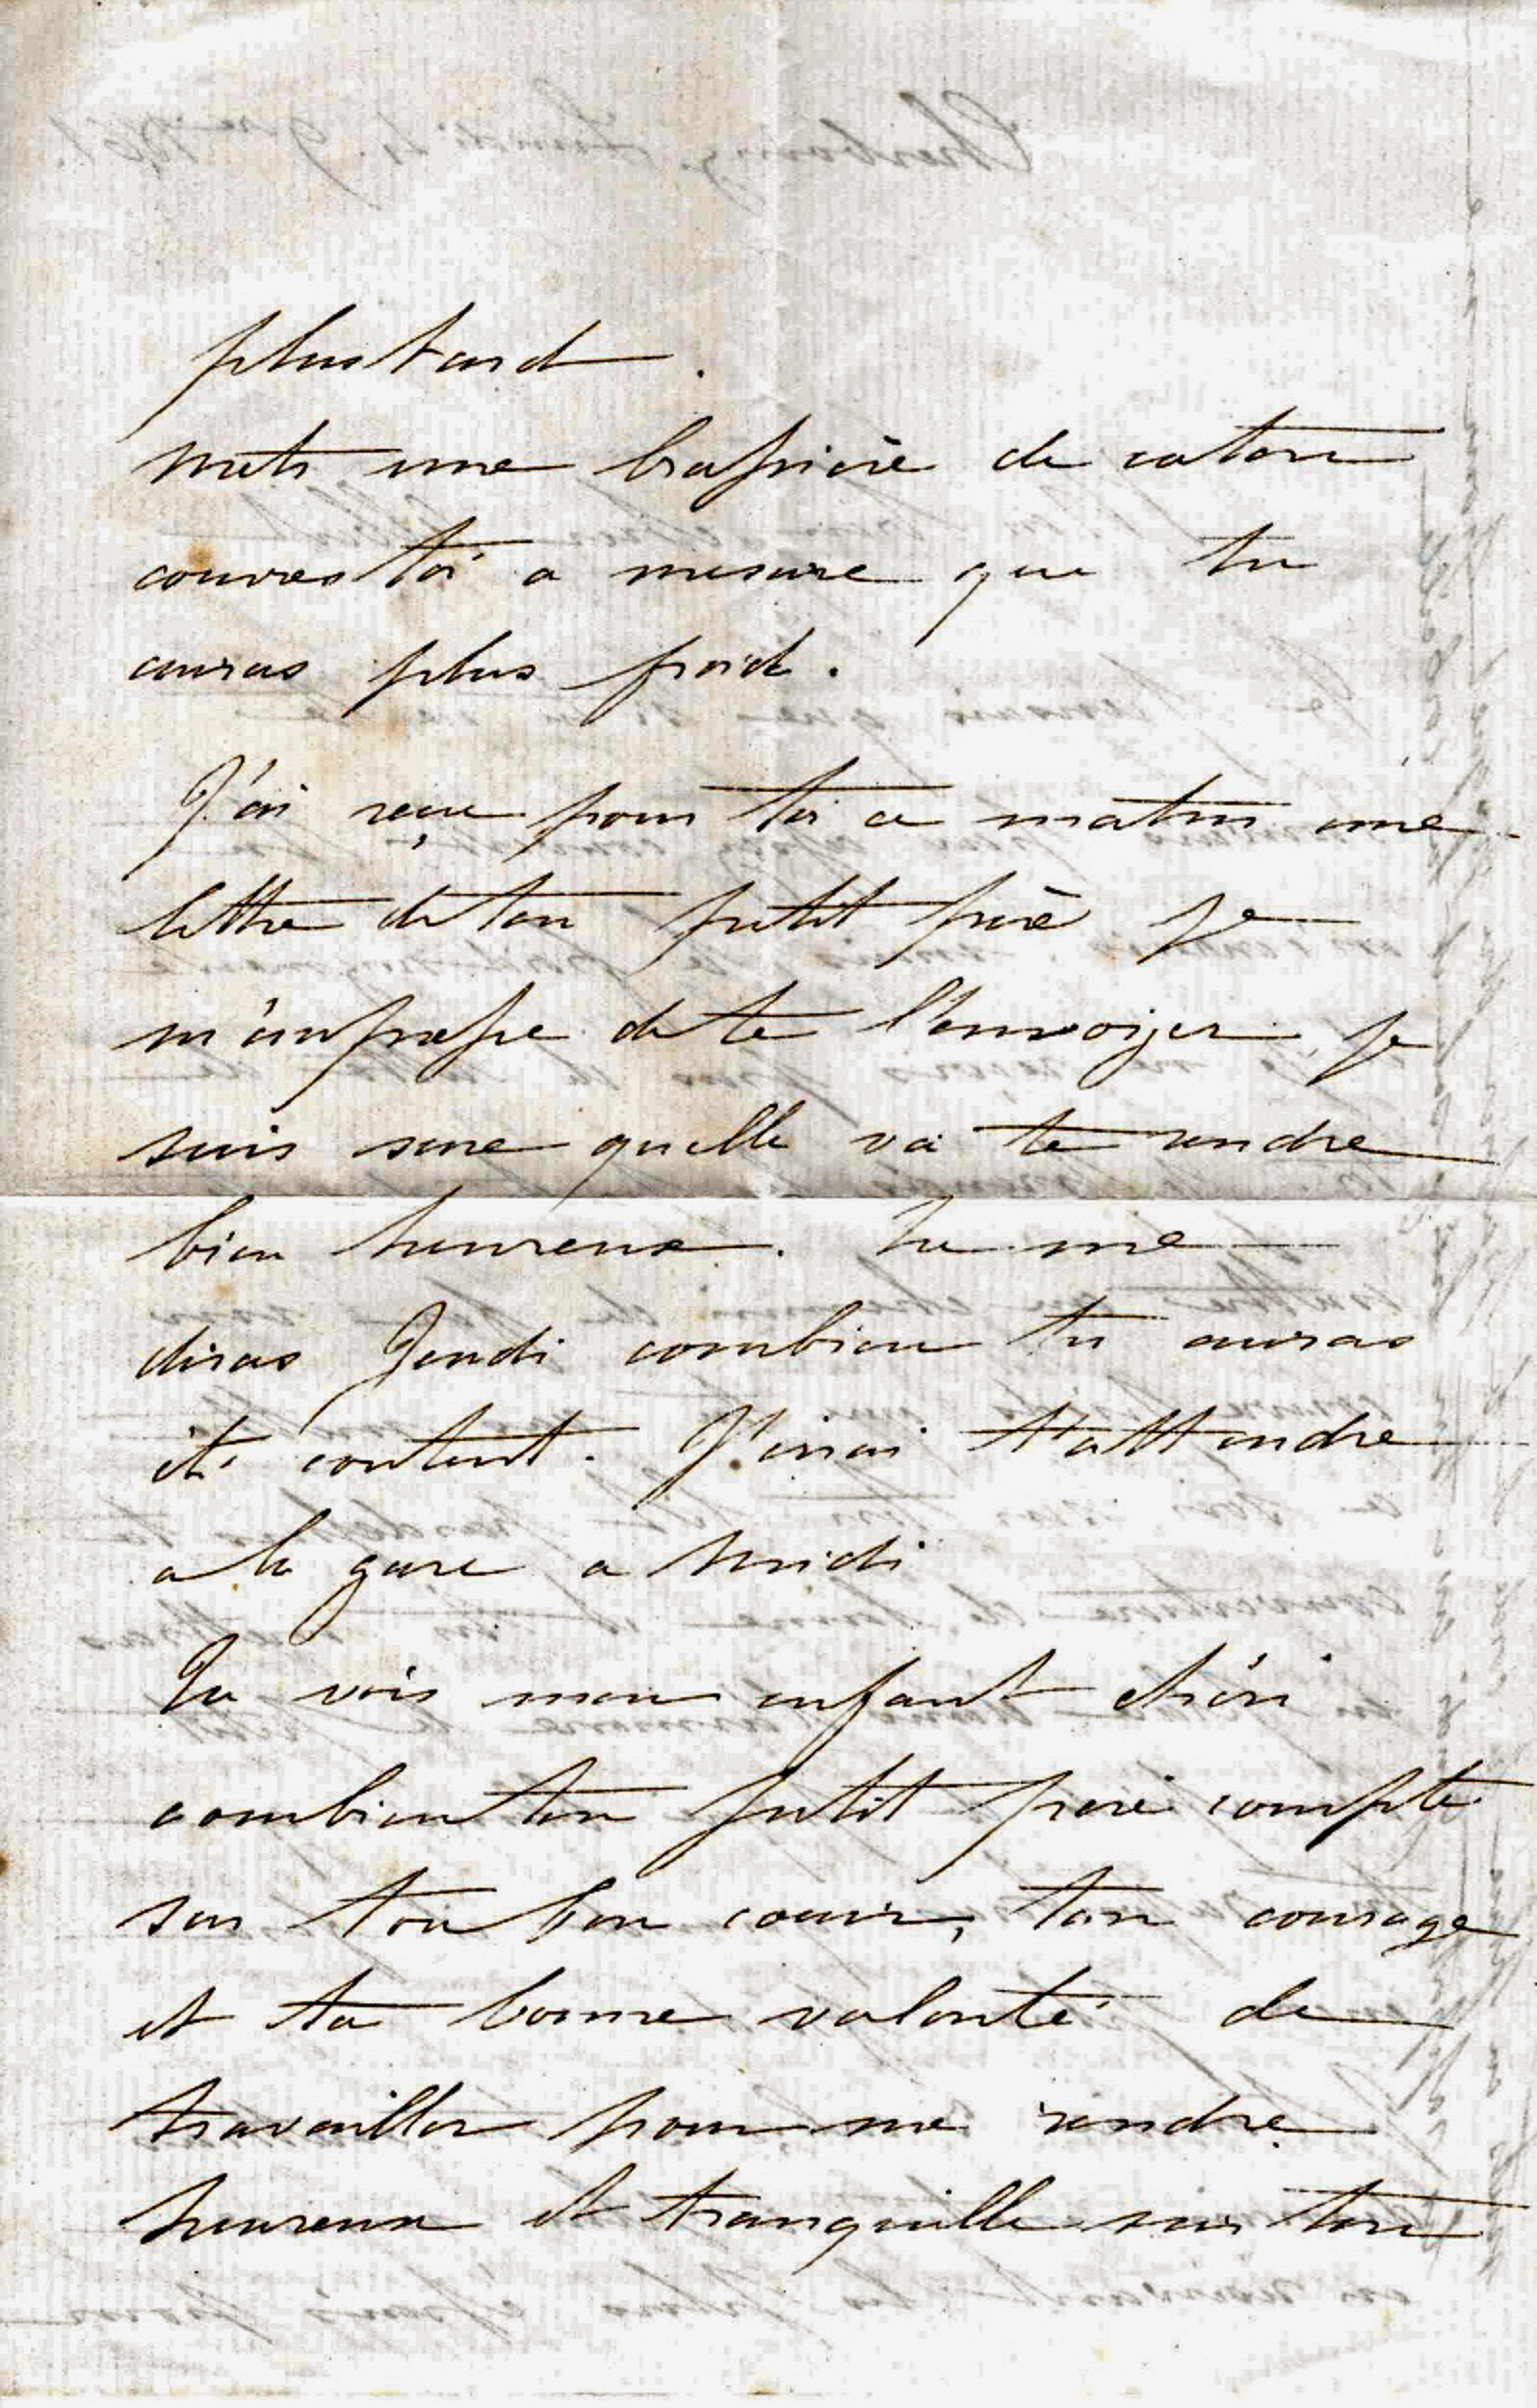 plus tard.
mets une brassière de coton
couvres toi a mesure que tu
auras plus froid.
J'ai reçu pour toi ce matin une
lettre de ton petit père je
m'empresse de te l'envoyer je
suis sure quelle va te rendre
bien heureux. tu me
diras Jeudi combien tu auras
été content. J'irai t'attendre
a la gare a midi
Tu vois mon enfant chéri
combien ton petit père compte
sur ton bon cœur, ton courage
et ta bonne volonté de
travailler pour me rendre
heureux et tranquille sur ton